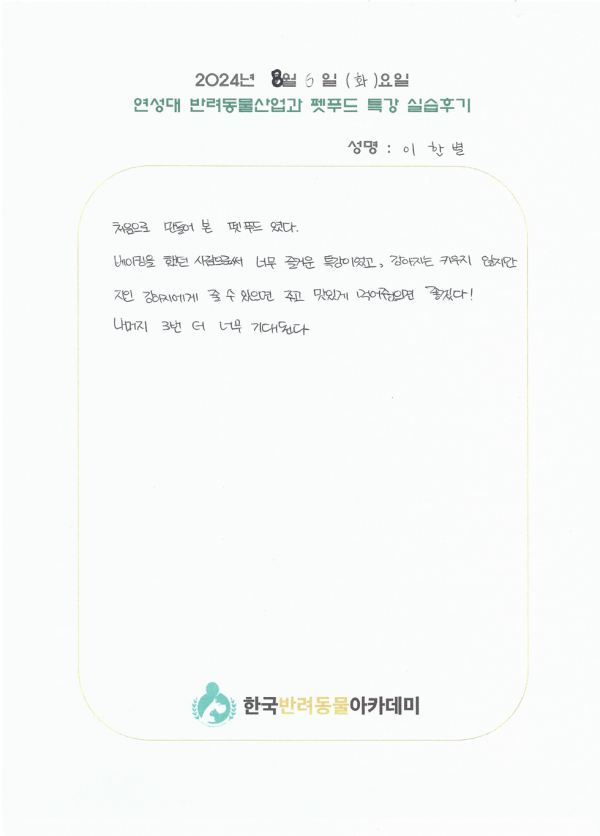 2024년 8월 6일 (화)요일
연성대 반려동물산업과 펫푸드 특강 실습후기
성명 : 이한별
처음으로 만들어 본 펫푸드 였다.
베이킹을 했던 사람으로써 너무 즐거운 특강이었고, 강아지는 키우지 않지만
지인 강아지에게 줄 수 있으면 주고 맛있게 먹어줬으면 좋겠다!
나머지 3번 더 너무 기대된다
한국반려동물아카데미